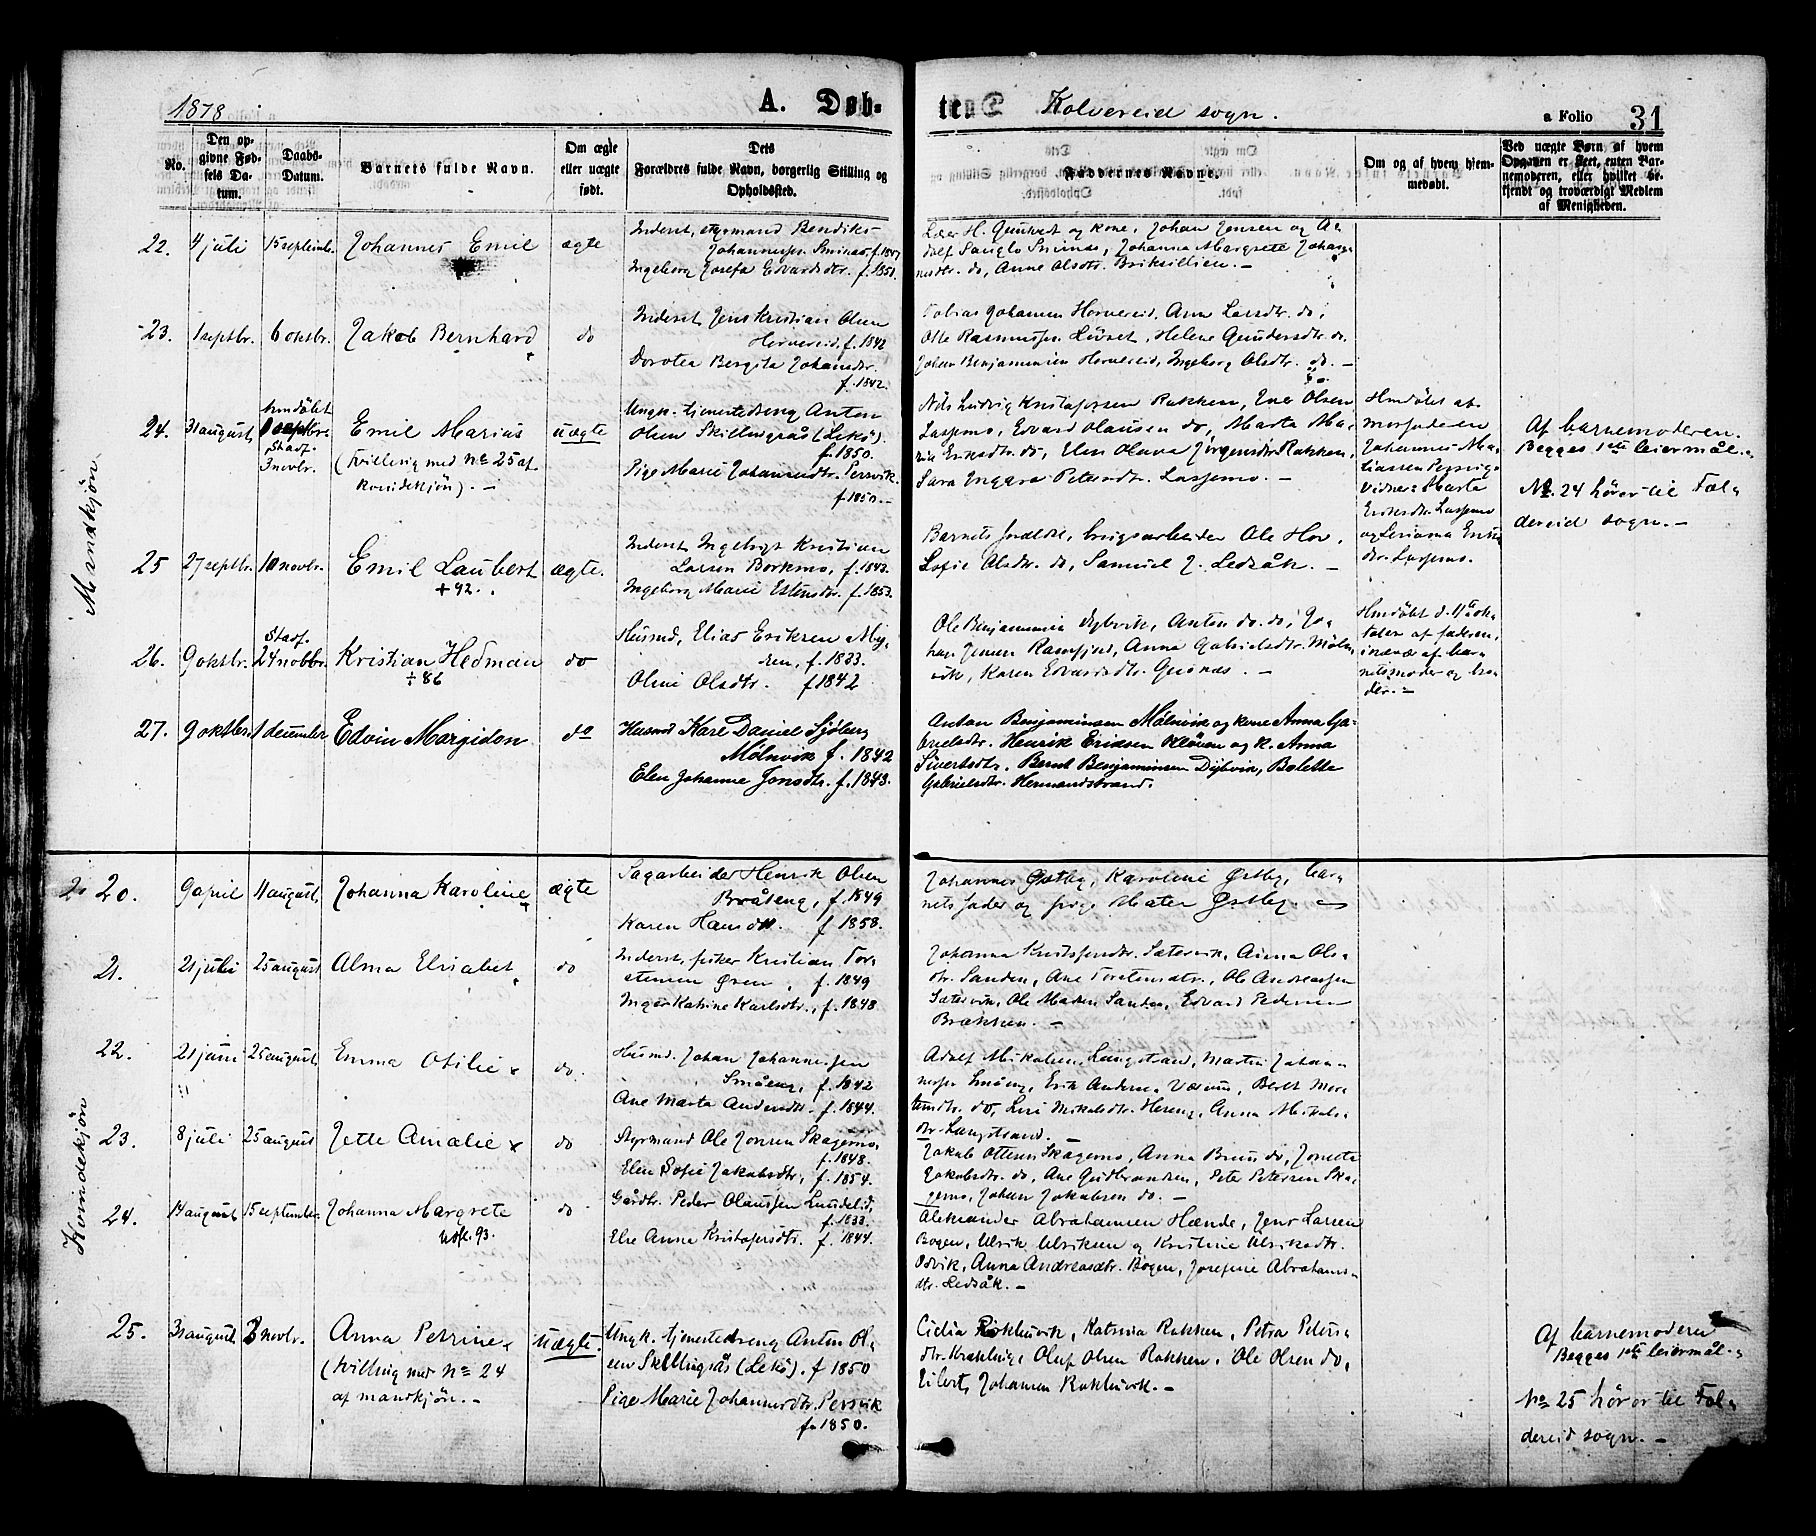 1878
A. Døb-
te.
Kolvereid sogn.
a Folio 31
No.
Den op-
givne Fød-
sels Da-
tum.
Daabs-
Datum.
Barnets fulde Navn.
Om ægte
eller uægte
født.
Dets
Forældres fulde Navn, borgerlig Stilling og
Opholdssted.
Faddernes Navne.
Om og af hvem hjem-
medøbt.
Ved uægte Børn af hvem
Opgaven er skeet, enten Bar-
nemoderen, eller hvilket be-
kjendt og troværdigt Medlem
af Menigheden.
Mandkjøn.
22. 4 juli 15 septembr. Johannes Emil ægte
Inderst, styrmand Bendiks
Ingeborg Josefa Edvardsdtr. f. 1851.
og kone, Johan Jensen og A-
Johanna Margrete Johan-
nesdtr. do, Anne Olsdtr.
23. 1 septbr. 6 oktbr. Jakob Bernhard do
Inderst Jens Kristian Olsen
Horvereid, f. 1842
Dorotea Bergita Johansdtr.
f. 1842.
Tobias Johansen Horvereid, Anne Larsdtr. do,
Otte Rasmussen Liøset, Helene Gundersdtr. do
Johan Benjaminsen Horvereid, Ingeborg Olsdtr. do. –
24. 31 august,
hmdøbt
septbr.
Stadf.
3 novbr.
Emil Marius
(Tvilling med No 25 af
kvindekjøn). –
uægte
Ungk. tjenestedreng Anton
Olsen Skillingsås (Lekö).
f. 1850.
Pige Marie Johannesdtr. Persvik.
f. 1850. –
Nils Ludvig Kristofersen Rakken, Ener Olsen
Lassemo, Edvard Olausen do, Marta Ma-
rie Eriksdtr. do, Elen Olava Jørgensdtr. Rakken,
Sara Ingara Petersdtr. Lassemo. –
Hmdøbt af
morfaderen
Johannes Ma-
Vidner: Marta
Eriksdtr. Lassemo
dtr. Lassemo.
Af barnemoderen.
Begges 1ste leiermål.
No. 24 hører til Fol-
dereid sogn. –
25 27 septbr. 10 novbr. Emil Laubert ægte.
+ 92.
Inderst Ingebrigt Kristian
Larsen Borkmo, f. 1843.
Ingeborg Marie Estensdtr. f. 1853.
Barnets forældre, brugsarbeider Ole Hov,
Sofie Olsdtr. do, Samuel J. Ledsåk. –
26. 9 oktbr.
Stadf.
24 novbr. Kristian Hedman do
+ 86
Husmd. Elias Eriksen My-
ren, f. 1833.
Oline Olsdtr. f 1842
Ole Benjaminsen Dybvik, Anton do. do, Jo-
han Jensen Ramfjord, Anna Gabrielsdtr. Møln-
vik, Karen Edvardsdtr. Geisnæs. –
Hmdøbt d. 11te ok-
tober af faderen,
nets moder og bro-
der. –
27. 9 oktbr. 1 december Edvin Margidon do
Husmd Karl Daniel Sjøberg
Mølnvik f. 1842
Elen Johanne Jonsdtr. f. 1843.
Anton Benjaminsen Mølnvik og kone Anna Ga-
brielsdtr. Henrik Eriksen Kløven og k. Anna
Sivertsdtr. Bernt Benjaminsen Dybvik, Bolette
Gabrielsdtr. Hermandstrand.
Kvindekjøn
20. 9 april 11 august, Johanna Karoline ægte
Sagarbeider Henrik Olsen
Bråteng, f. 1849
Karen Hansdtr. f 1858.
Johannes Østby, Karoline Østby, bar-
nets fader og pige Mater Østby. –
21. 21 juli 25 august Alma Elisabet do
Inderst, fisker Kristian Tor-
stensen Øren, f. 1849
Inger Katrine Karlsdtr., f. 1848
Johanna Kristofersdtr. Sætervik, Anna Ols-
dtr. Sanden, Ane Torstensdtr., Ole Andreassen
Sætervik, Ole Madsen Sanden, Edvard Pedersen
Brækken. –
22. 21 juni 25 august Emma Otilie do.
Husmd. Johan Johannessen
Småeng, f. 1842
Ane Marta Andersdtr. f. 1844.
Adolf Mikalsen Langstrand, Martin Johan-
nessen Småeng, Erik Anders. Værum, Beret Mor-
tensdtr. do, Liri Mikalsdtr. Hereng, Anna Mikals-
dtr. Langstrand. –
23. 8 juli 25 august Jette Amalie do
Styrmand Ole Jonsen Skagemo,
f. 1848.
Elen Sofie Jakobsdtr., f. 1854.
Jakob Ottesen Skagemo, Anna Bruu do, Jonette
Jakobsdtr. do, Ane Gudbrandsen, Peter Petersen Ska-
gemo, Johan Jakobsen do. –
24. 14 august 15 september Johanna Margrete do
Utfl. 93.
Gårdbr. Peder Olaussen Lundelid,
f. 1833.
Else Anna Kristofersdtr. f. 1844.
Aleksander Abrahamsen Hænde, Jens Larsen
Bogen, Ulrik Ulriksen og Kristine Ulriksdtr.
Odvik, Anna Andreasdtr. Bogen, Josefine Abrahams-
dtr. Ledsåk. –
25. 31 august 3 novbr. Anna Perrine uægte.
(Tvilling med No 24
af mandkjøn. –
Ungk. tjenestedreng Anton Ol-
sen Skillingsås (Lekö). f 1850
Pige Marie Johannesdtr. Persvik
f. 1850.
Rokhusvik, Katrina Rakken, Petra Peters-
dtr. Oluf Olsen Rakken, Ole Olsen do,
Eilert Johansen Rokhusvik. –
Af barnemoderen
Begges 1ste leiermål.
No 25 hører til Fol-
dereid sogn. –